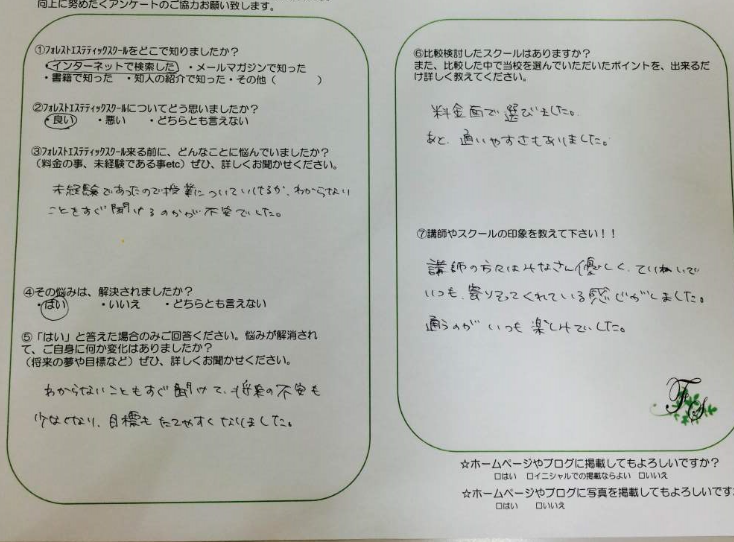 向上に努めたくアンケートのご協力お願い致します。
①ﾌｫﾚｽﾄｴｽﾃﾃｨｯｸｽｸｰﾙをどこで知りましたか?
・インターネットで検索した ・メールマガジンで知った
・書籍で知った ・知人の紹介で知った・その他( )
②ﾌｫﾚｽﾄｴｽﾃﾃｨｯｸｽｸｰﾙについてどう思いましたか?
・良い ・悪い ・どちらとも言えない
③ﾌｫﾚｽﾄｴｽﾃﾃｨｯｸｽｸｰﾙ来る前に、どんなことに悩んでいましたか?
(料金の事、未経験である事etc)ぜひ、詳しくお聞かせください。
未経験であったので授業についていけるか、わからない
ことをすぐ聞けるのかが不安でした。
④その悩みは、解決されましたか?
・はい ・いいえ ・どちらとも言えない
⑤「はい」と答えた場合のみご回答ください。悩みが解消され
て、ご自身に何か変化はありましたか?
(将来の夢や目標など)ぜひ、詳しくお聞かせください。
わからないこともすぐ聞けて、将来の不安も
少なくなり、目標もたてやすくなりました。
⑥比較検討したスクールはありますか?
また、比較した中で当校を選んでいただいたポイントを、出来るだ
け詳しく教えてください。
料金面で選びました。
あと、通いやすさもありました。
⑦講師やスクールの印象を教えて下さい!!
講師の方々はみなさん優しく、ていねいで
いつも、寄りそってくれている感じがしました。
通うのがいつも楽しみでした。
FS
☆ホームページやブログに掲載してもよろしいですか?
□はい □イニシャルでの掲載ならよい □いいえ
☆ホームページやブログに写真を掲載してもよろしいです
□はい □いいえ